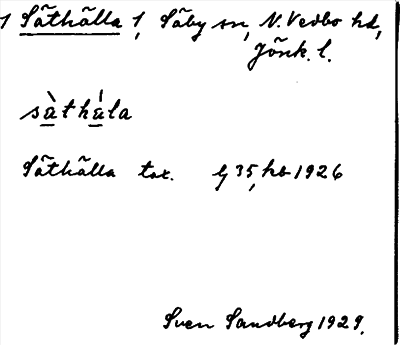 1 Säthälla 1, Säby sn, N. Vedbo hd,
Jönk. l.
sàthála
Säthälla tox. Lj 35, hb 1926
Sven Sandberg 1929.